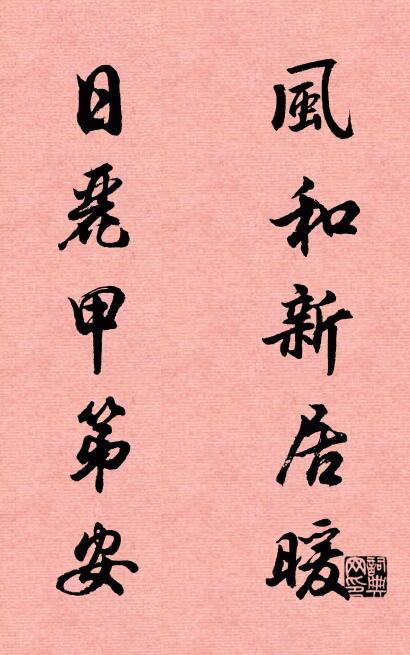 風和新居暖
日麗甲第安
詞典網印